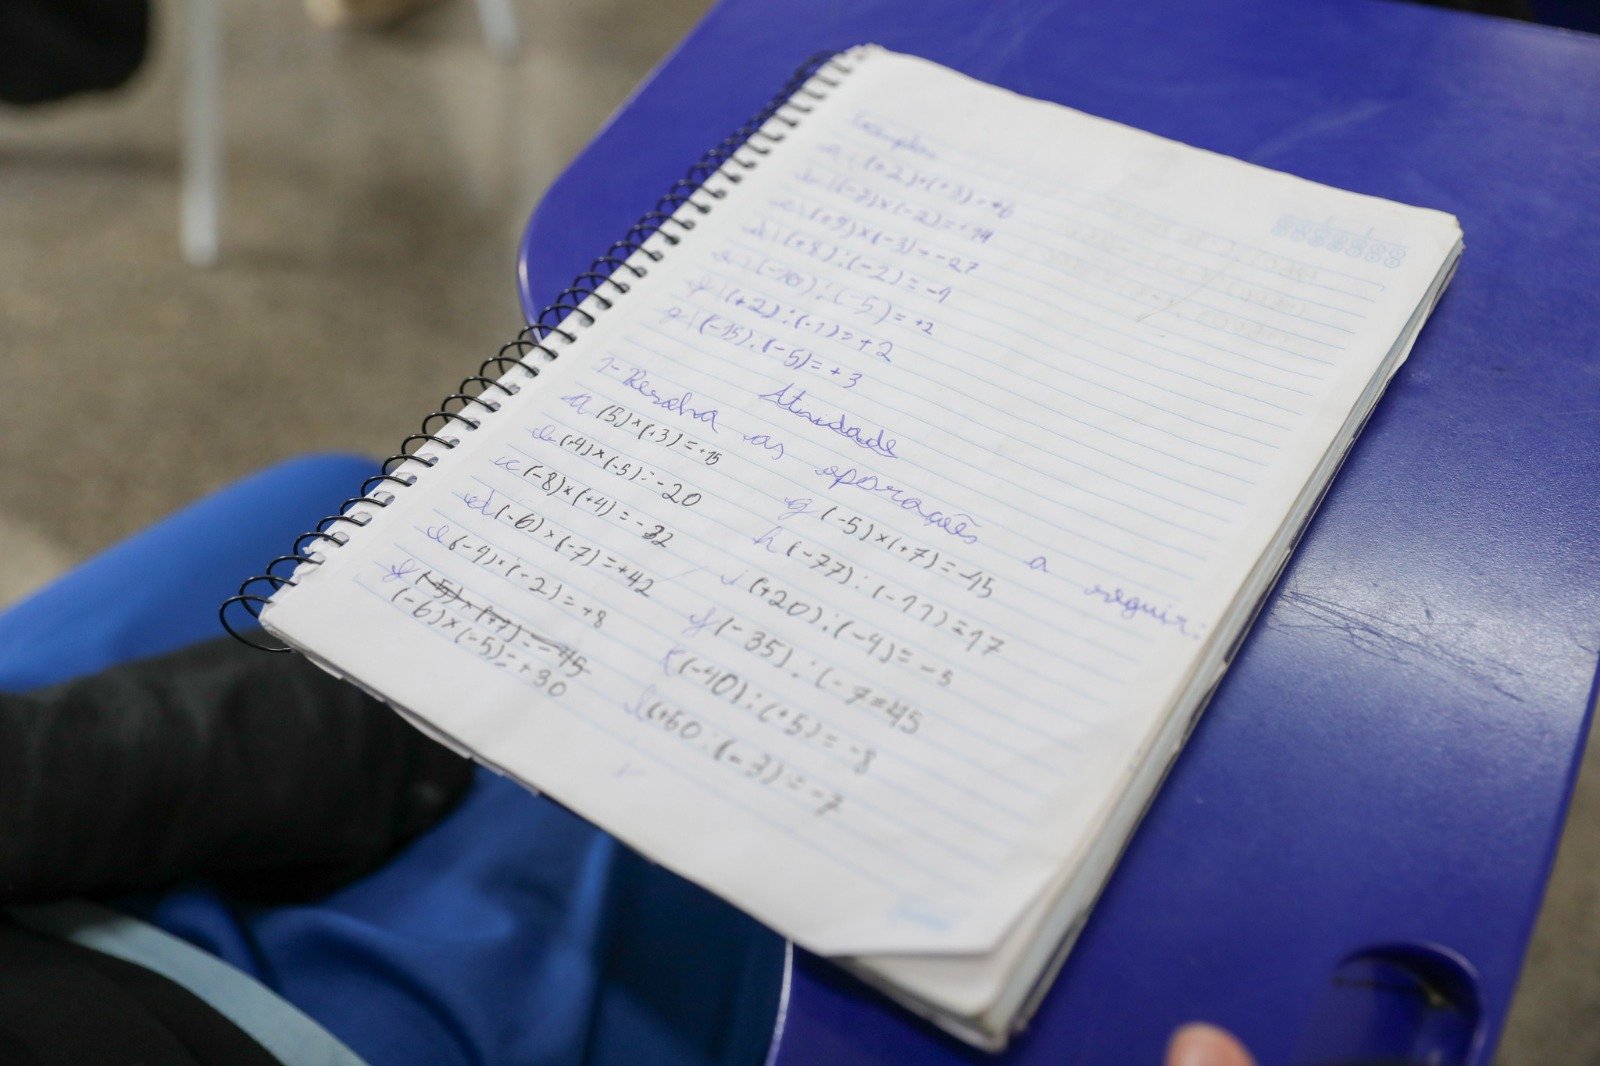 Exemplos
a) (+2)×(+3)=+6
b) (-7)×(-2)=+14
c) (+9)×(-3)=-27
d) (+8):(-2)=-4
e) (-10):(-5)=+2
f) (+2):(-1)=+2
g) (-15):(-5)=+3
Atividade
1- Resolva as operações a seguir:
a (5)×(+3)=+15
b (+4)×(-5)=-20
c (-8)×(+4)=-32
d (-6)×(-7)=+42
e (-4)×(-2)=+8
f (-5)×(+7)=-45
(-6)×(-5)=+30
g (-5)×(+7)=-45
h (-77):(-11)=17
i (+20):(-4)=-5
j (-35):(-7=45
k (-40):(+5)=-8
l (+50:(-3)=-7